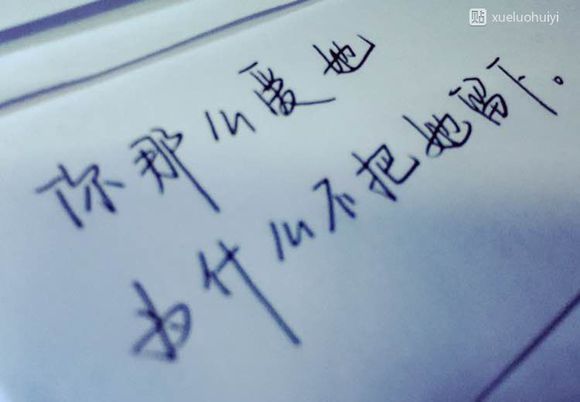 贴 xueluohuiyi
你那么爱她
为什么不把她留下。